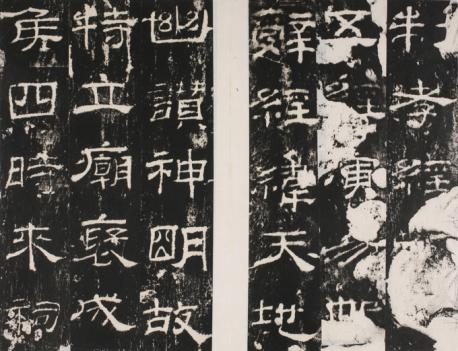 制孝經
五經演易繫
辭經緯天地
幽讃神明故
特立廟褒成
侯四時來祠